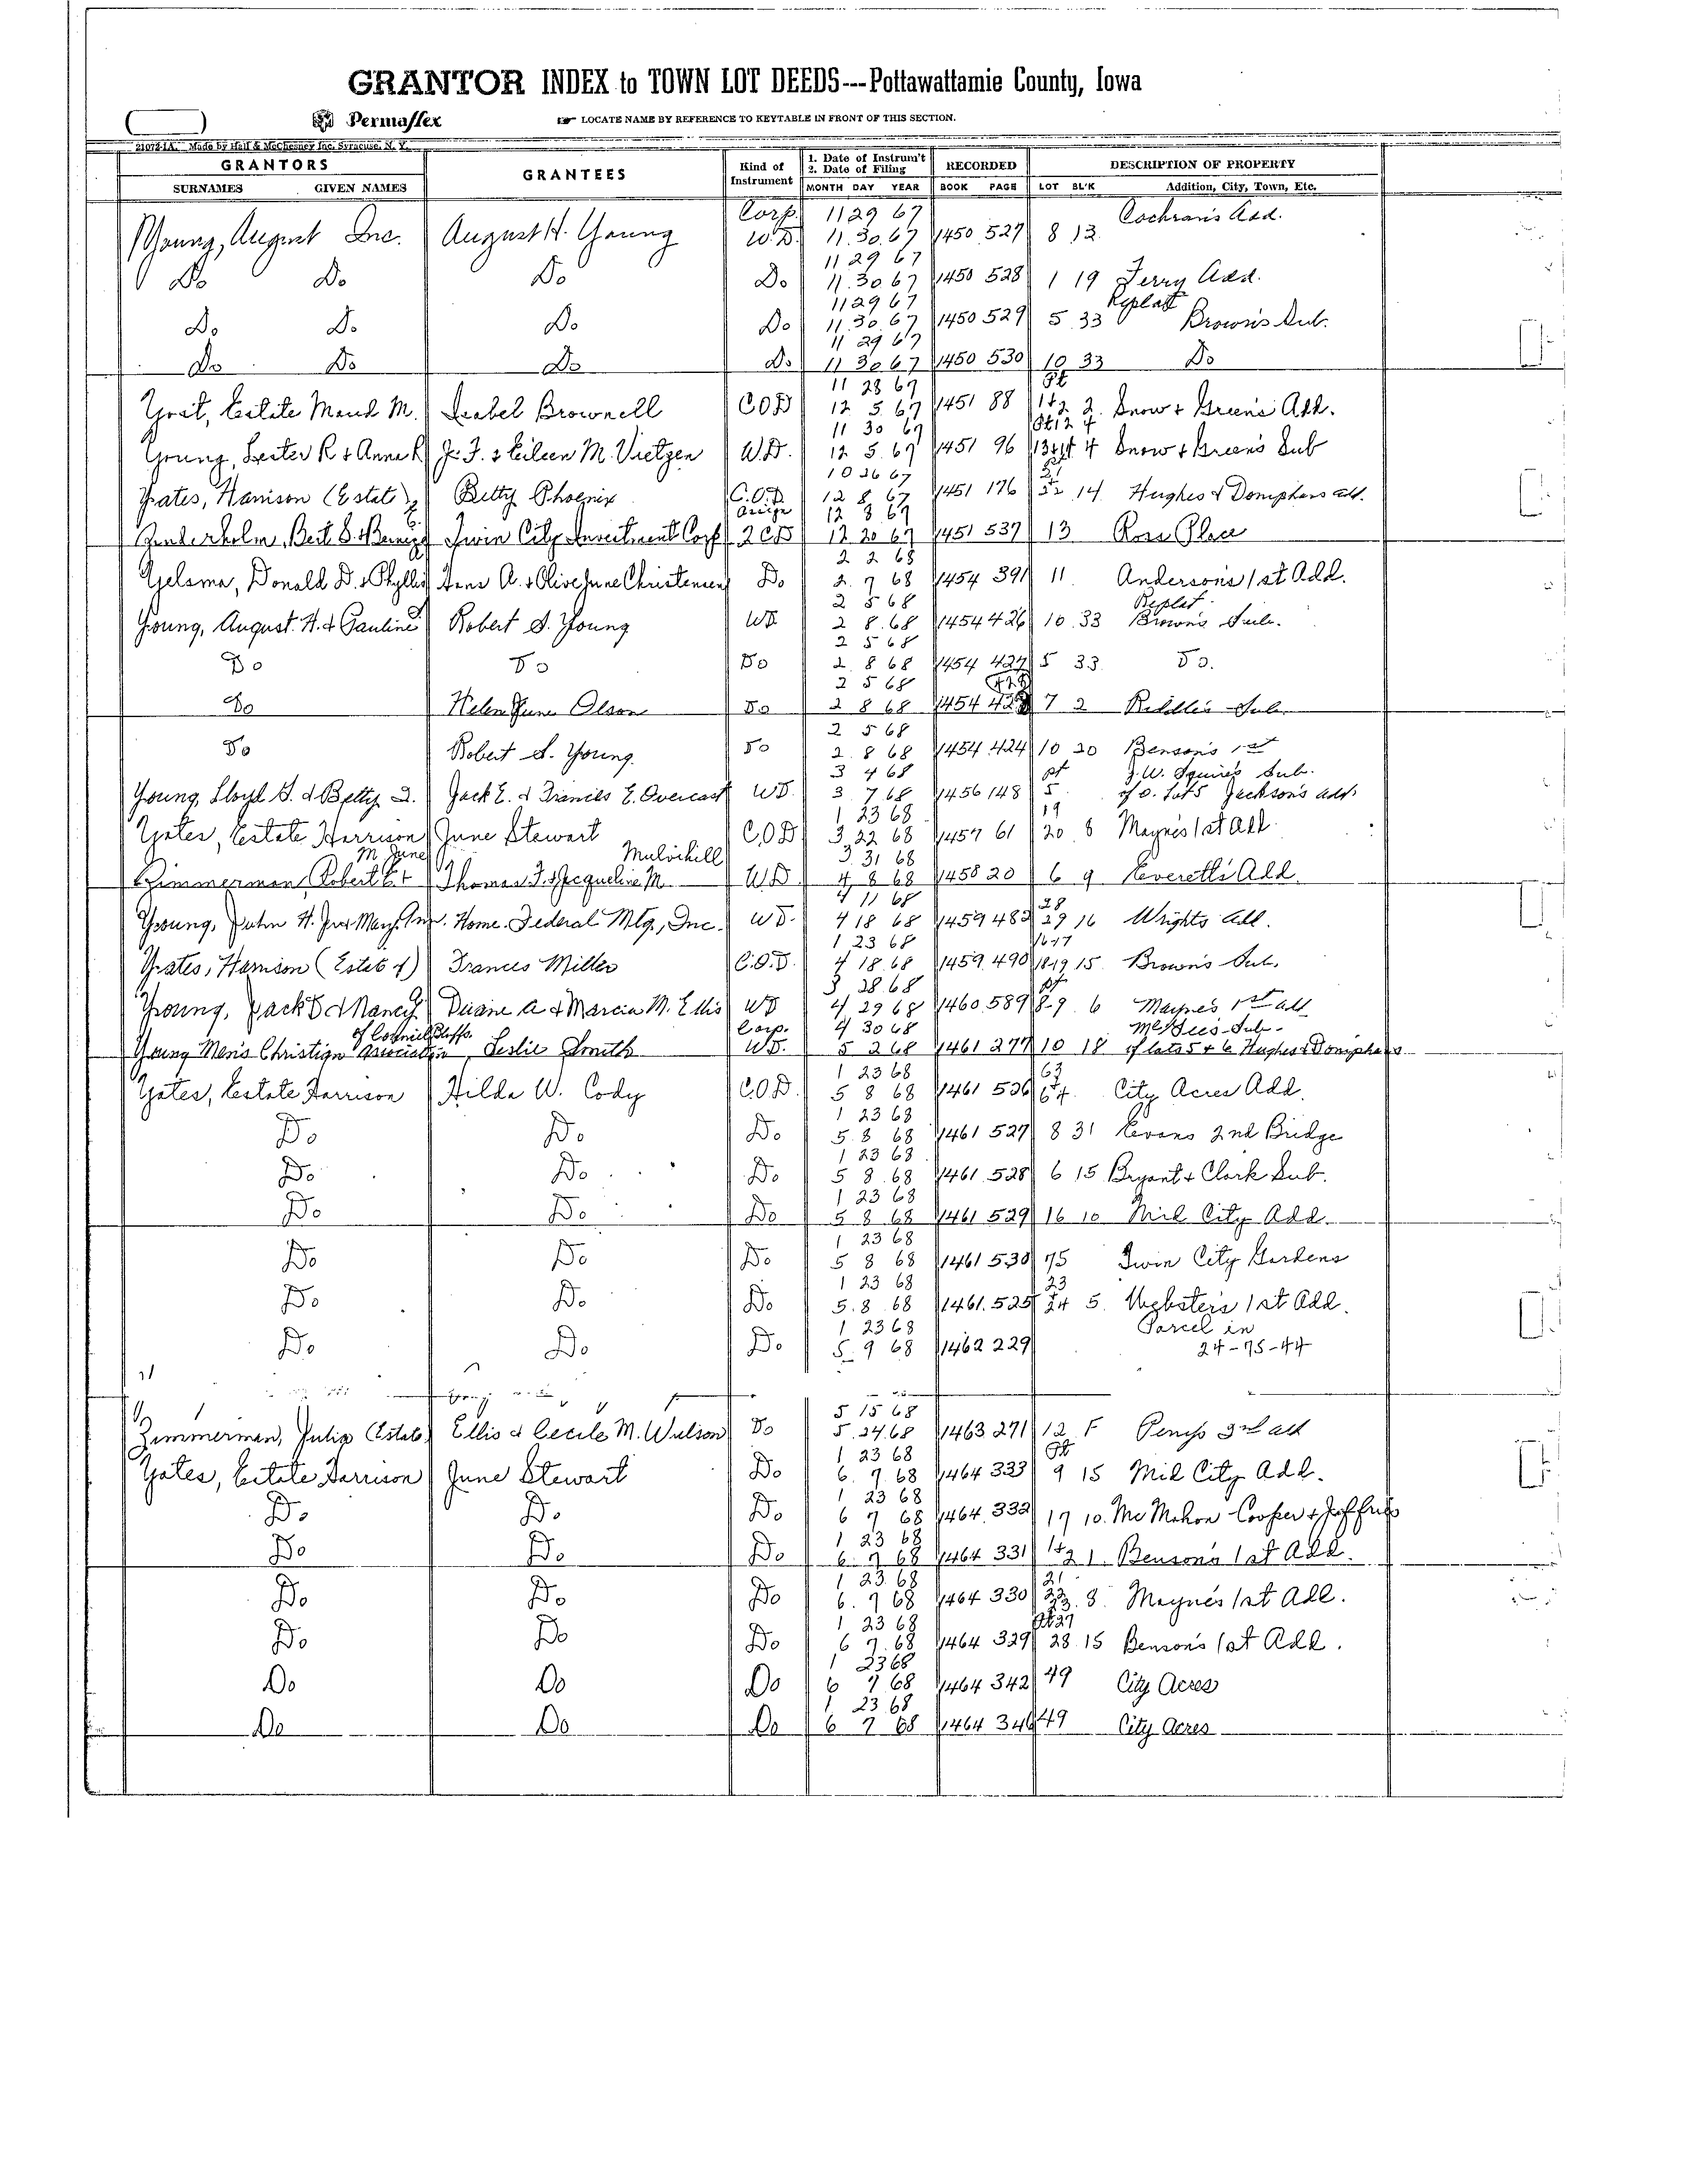 GRANTOR INDEX to TOWN LOT DEEDS---Pottawattamie County, Iowa
Permaflex
LOCATE NAME BY REFERENCE TO KEYTABLE IN FRONT OF THIS SECTION.
21072-1A Made by Hall & McChesney Inc. Syracuse, N. Y.
GRANTORS GRANTEES Kind of Instrument 1. Date of Instrum't 2. Date of Filing RECORDED DESCRIPTION OF PROPERTY
SURNAMES GIVEN NAMES MONTH DAY YEAR BOOK PAGE LOT BL'K Addition, City, Town, Etc.
Corp. 11 29 67 Cochran's Add.
Young, August Inc. August H. Young W.D. 11 30 67 1450 527 8 13
11 29 67
Do Do Do Do 11 30 67 1450 528 1 19 Terry Add.
11 29 67 Replat
Do Do Do Do 11 30 67 1450 529 5 33 Brown's Sub.
11 29 67
Do Do Do Do 11 30 67 1450 530 10 33 Do
11 28 67 Pt
Yost, Estate Maud M. Isabel Brownell COD 12 5 67 1451 88 1+2 2 Snow + Green's Add.
11 30 67 Pt 12 4
Young, Lester R + Anna R J. F. + Eileen M. Vietzen W.D. 12 5 67 1451 96 4 Snow + Green's Sub
10 26 67
Yates, Harrison (Estate of) Betty Phoenix C.O.D. 12 8 67 1451 176 14 Hughes & Doniphans add.
Assign 12 8 67
Twin City Investment Corp 12 20 67 1451 537 13 Ross Place
2 2 68
Yelsma, Donald D. + Phyllis A. + Olive June Christensen Do 2 7 68 1454 391 11 Anderson's 1st Add.
2 5 68 Replat
Young, August H. & Pauline Robert S. Young WD 2 8 68 1454 426 10 33 Brown's Sub.
2 5 68
Do Do Do 2 8 68 1454 427 5 33 Do.
2 5 68
Do Helen June Olson Do 2 8 68 1454 7 2 Riddle's Sub.
2 5 68
Do Robert S. Young. Do 2 8 68 1454 424 10 20 Benson's 1st
3 4 68 pt J.W. Squire's Sub.
Young, Lloyd S. & Betty Jack E. & Frances E. Overcast WD. 3 7 68 1456 148 5 of O. Lot 5 Jackson's add.
1 23 68 19
Yates, Estate Harrison June Stewart C.O.D 3 22 68 1457 61 20 8 Mayne's 1st Add
M June Mulvihill 3 31 68
Zimmerman, Robert E + Thomas J. + Jacqueline M. W.D 4 8 68 1458 20 6 9 Everett's Add.
4 11 68 28
Young, John H. Jr. Home Federal Mtg., Inc. WD. 4 18 68 1459 483 29 16 Wrights Add.
1 23 68 16+17
Yates, Harrison (Estate of) Frances Miller C.O.D. 4 18 68 1459 490 18-19 15 Brown's Sub.
3 28 68 pt
Young, Jack & Nancy Duane A & Marcia M. Ellis WD 4 29 68 1460 589 8-9 6 Maynes 1st add
of Council Bluffs. Corp. 4 30 68
Young Men's Christian Association Leslie Smith WD. 5 2 68 1461 277 10 18 of lots 5 + 6 Hughes & Doniphans
1 23 68 63
Yates, Estate Harrison Hilda W. Cody C.O.D. 5 8 68 1461 526 64 City Acres Add.
1 23 68
Do Do Do 5 8 68 1461 527 8 31 Evans 2nd Bridge
1 23 68
Do Do Do 5 8 68 1461 528 6 15 Bryant + Clark Sub.
1 23 68
Do Do Do 5 8 68 1461 529 16 10 Mil City Add.
1 23 68
Do Do Do 5 8 68 1461 530 75 Twin City Gardens
1 23 68 23
Do Do Do 5 8 68 1461 525 24 5 Webster's 1st Add.
1 23 68 Parcel in
Do Do Do 5 9 68 1462 229 24-75-44
5 15 68
Zimmerman, Julia (Estate) Ellis & Cecile M. Wilson Do 5 24 68 1463 271 12 F Perry's 3rd add
1 23 68 Pt
Yates, Estate Harrison June Stewart Do 6 7 68 1464 333 9 15 Mil City Add.
1 23 68
Do Do Do 6 7 68 1464 332 17 10 Mc Mahon Cooper & Jefferis
1 23 68
Do Do Do 6 7 68 1464 331 1+2 1 Benson's 1st Add.
1 23 68 21
Do Do Do 6 7 68 1464 330 8 Mayne's 1st Add.
1 23 68 Pt 27
Do Do Do 6 7 68 1464 329 28 15 Benson's 1st Add.
1 23 68
Do Do Do 6 7 68 1464 342 49 City Acres
1 23 68
Do Do Do 6 7 68 1464 346 49 City Acres